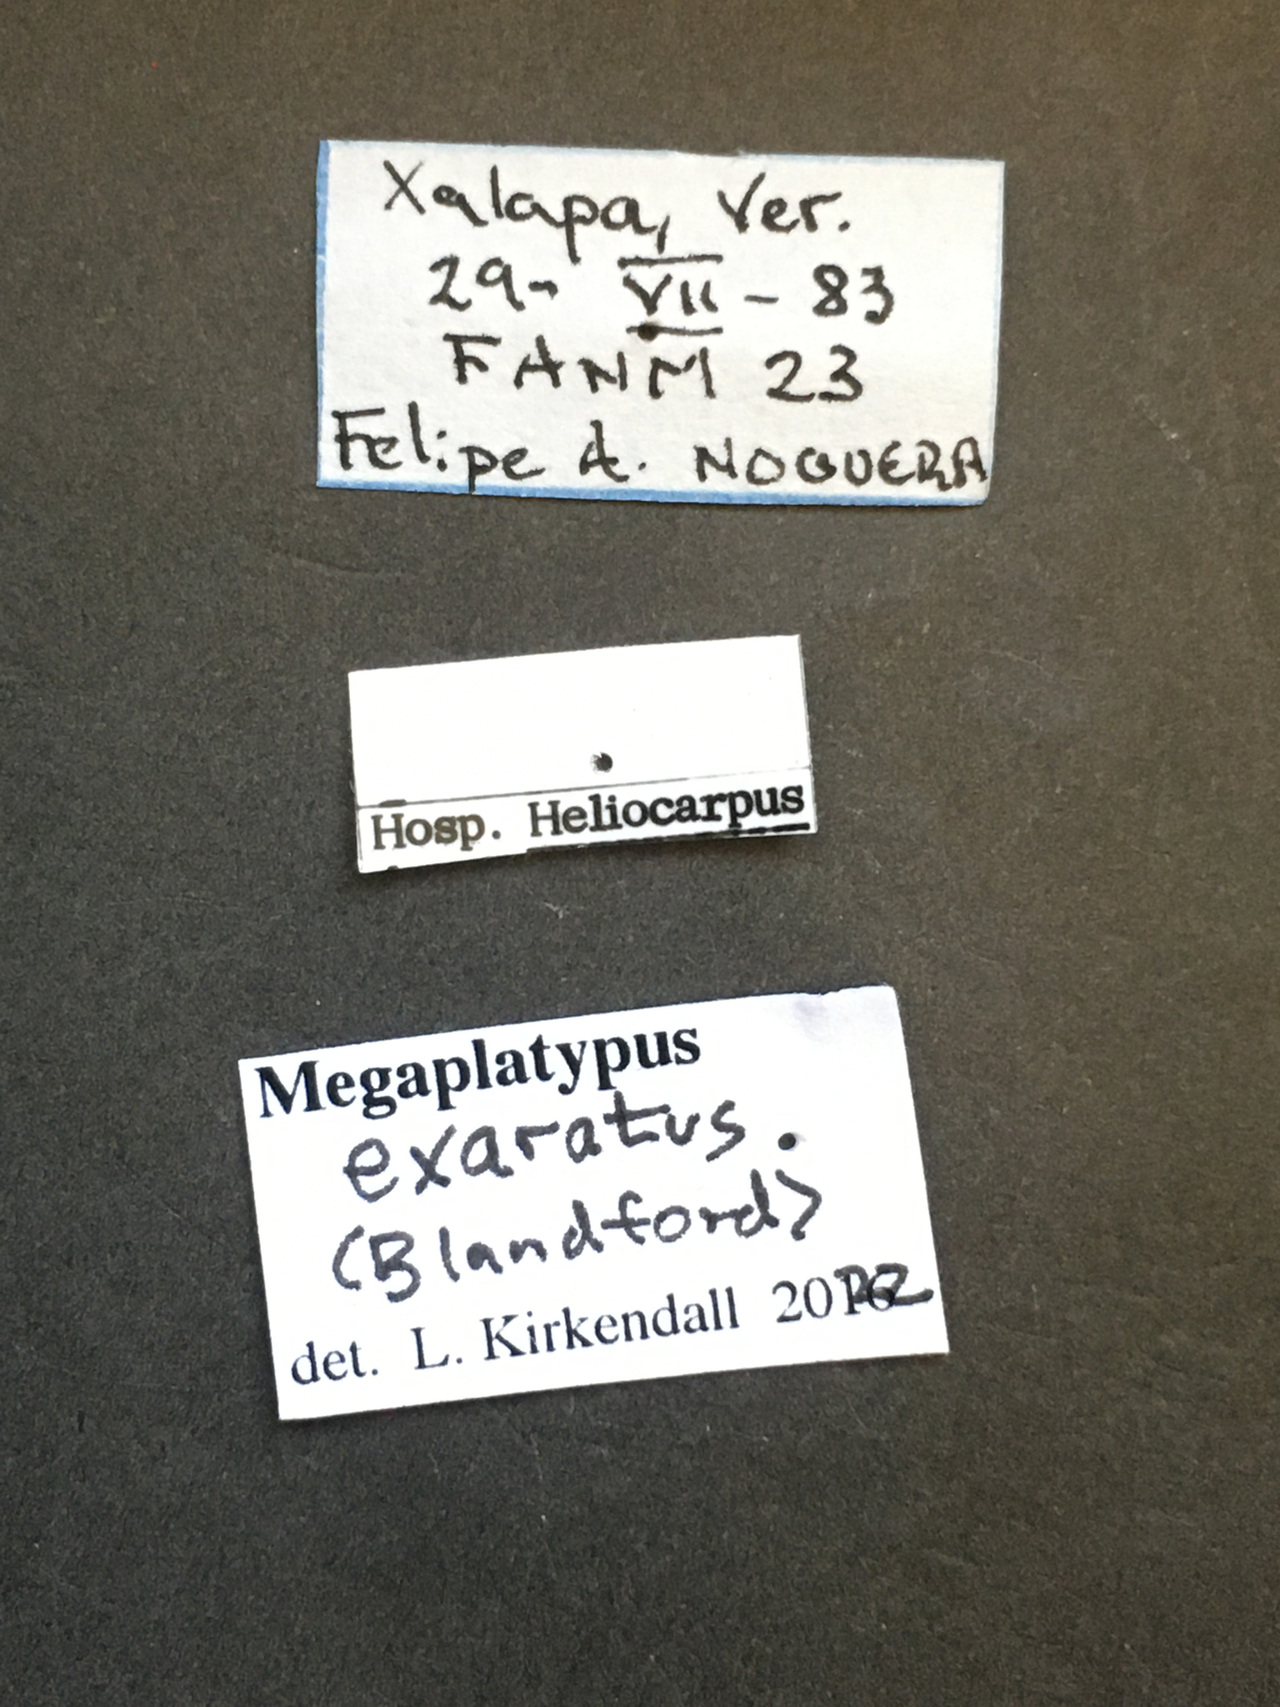 Xalapa, Ver.
29- VII - 83
FANM 23
Felipe A. NOGUERA
Hosp. Heliocarpus
Megaplatypus
exaratus
(Blandford)
det. L. Kirkendall